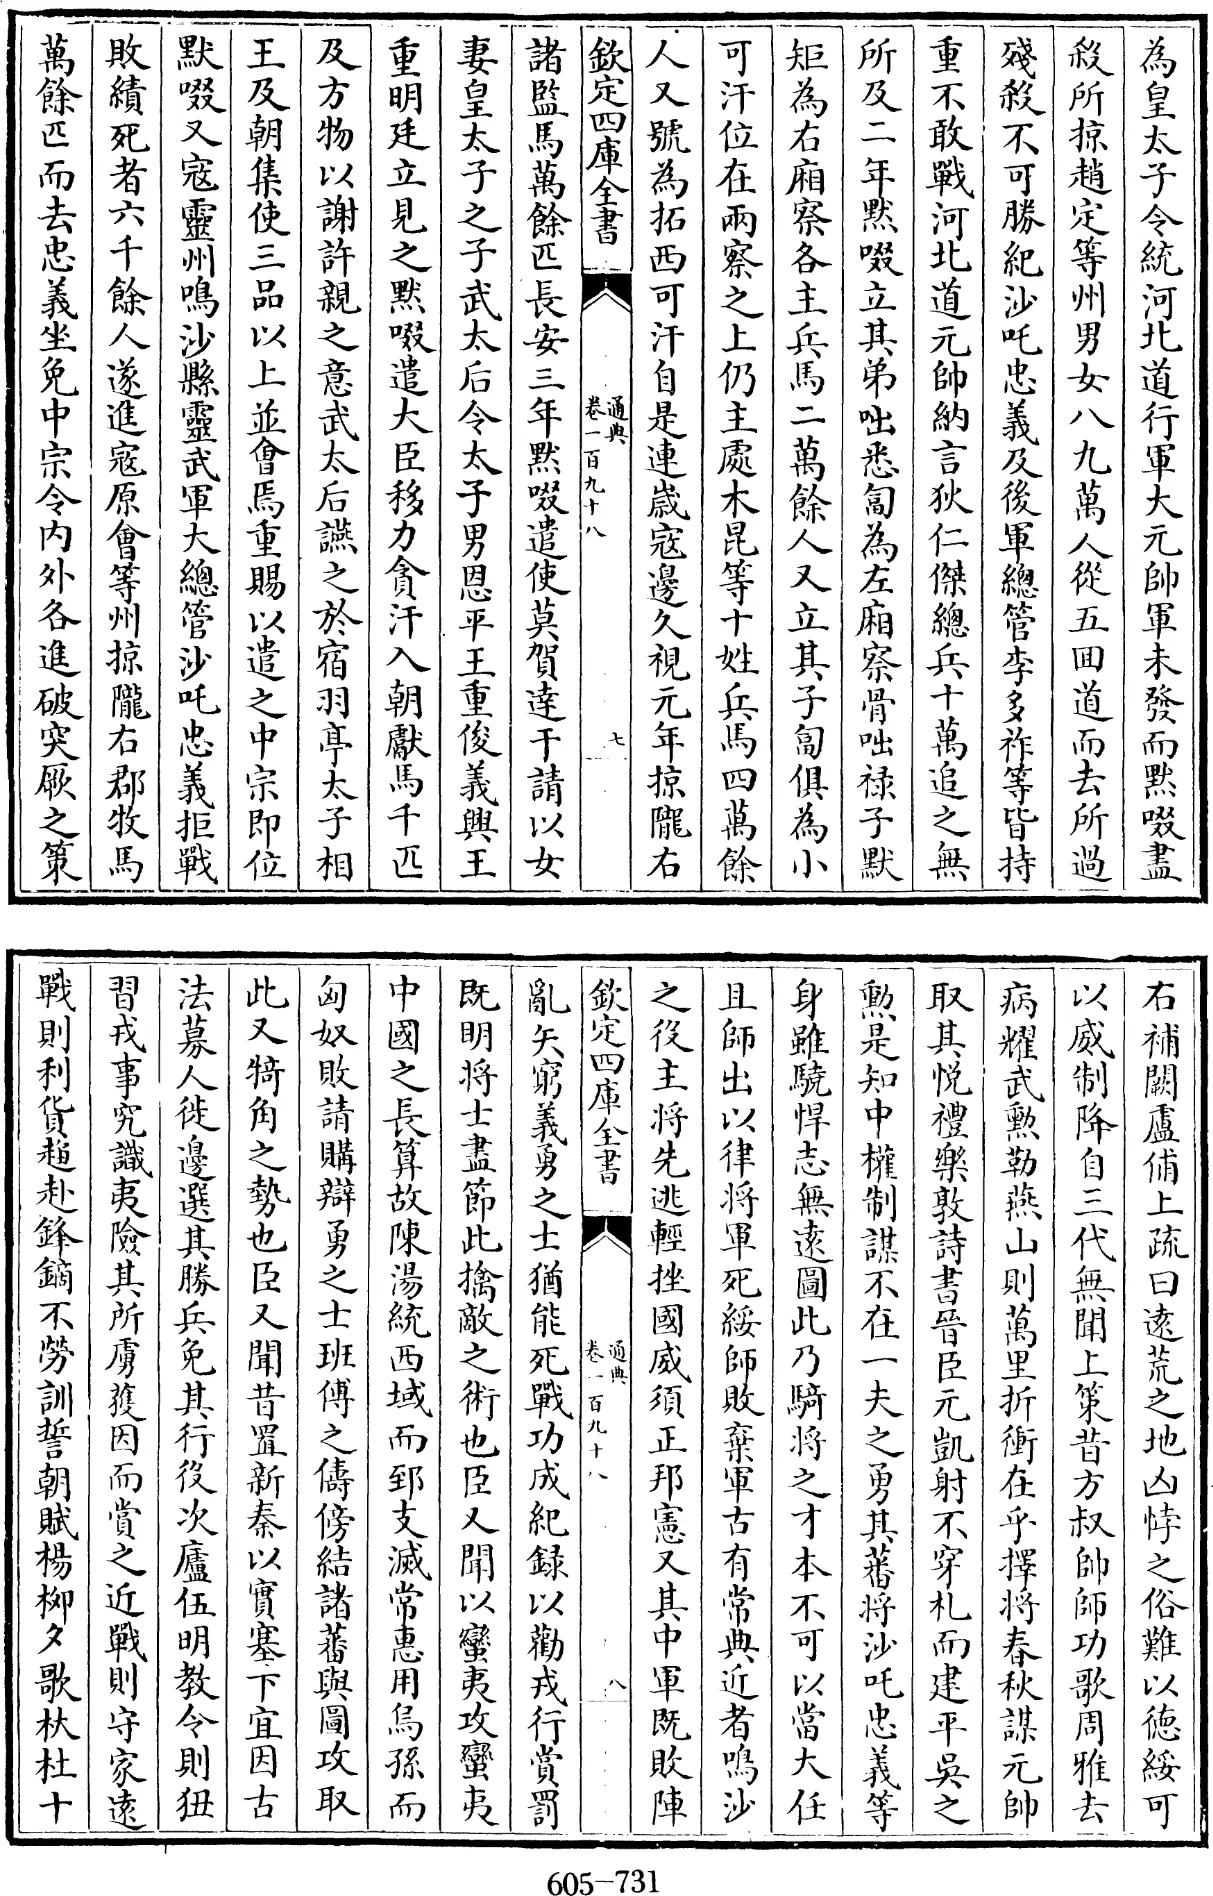 為皇太子令統河北道行軍大元帥軍未發而默啜盡
殺所掠趙定等州男女八九萬人從五回道而去所過
殘殺不可勝紀沙吒忠義及後軍總管李多祚等皆持
重不敢戰河北道元帥納言狄仁傑總兵十萬追之無
所及二年默啜立其弟咄悉匐為左廂察骨咄祿子默
矩為右廂察各主兵馬二萬餘人又立其子匐俱為小
可汗位在兩察之上仍主處木昆等十姓兵馬四萬餘
人又號為拓西可汗自是連歲寇邊久視元年掠隴右
欽定四庫全書
通典
卷一百九十八
七
諸監馬萬餘匹長安三年默啜遣使莫賀達干請以女
妻皇太子之子武太后令太子男恩平王重俊義興王
重明廷立見之默啜遣大臣移力貪汗入朝獻馬千匹
及方物以謝許親之意武太后讌之於宿羽亭太子相
王及朝集使三品以上並會焉重賜以遣之中宗即位
默啜又寇靈州鳴沙縣靈武軍大總管沙吒忠義拒戰
敗績死者六千餘人遂進寇原會等州掠隴右郡牧馬
萬餘匹而去忠義坐免中宗令內外各進破突厥之策
右補闕盧俌上疏曰遠荒之地凶悖之俗難以德綏可
以威制降自三代無聞上策昔方叔帥師功歌周雅去
病耀武勲勒燕山則萬里折衝在乎擇將春秋謀元帥
取其悦禮樂敦詩書晉臣元凱射不穿札而建平吳之
勲是知中權制謀不在一夫之勇其蕃將沙吒忠義等
身雖驍悍志無遠圖此乃騎將之才本不可以當大任
且師出以律將軍死綏師敗棄軍古有常典近者鳴沙
之役主將先逃輕挫國威須正邦憲又其中軍既敗陣
欽定四庫全書
通典
卷一百九十八
八
亂矢窮義勇之士猶能死戰功成紀録以勸戎行賞罰
既明將士盡節此擒敵之術也臣又聞以蠻夷攻蠻夷
中國之長算故陳湯統西域而郅支滅常惠用烏孫而
匈奴敗請購辯勇之士班傅之儔傍結諸蕃與圖攻取
此又犄角之勢也臣又聞昔置新秦以實塞下宜因古
法募人徙邊選其勝兵免其行役次廬伍明教令則狃
習戎事究識夷險其所虜獲因而賞之近戰則守家遠
戰則利貨趨赴鋒鏑不勞訓誓朝賦楊柳夕歌杕杜十
605-731